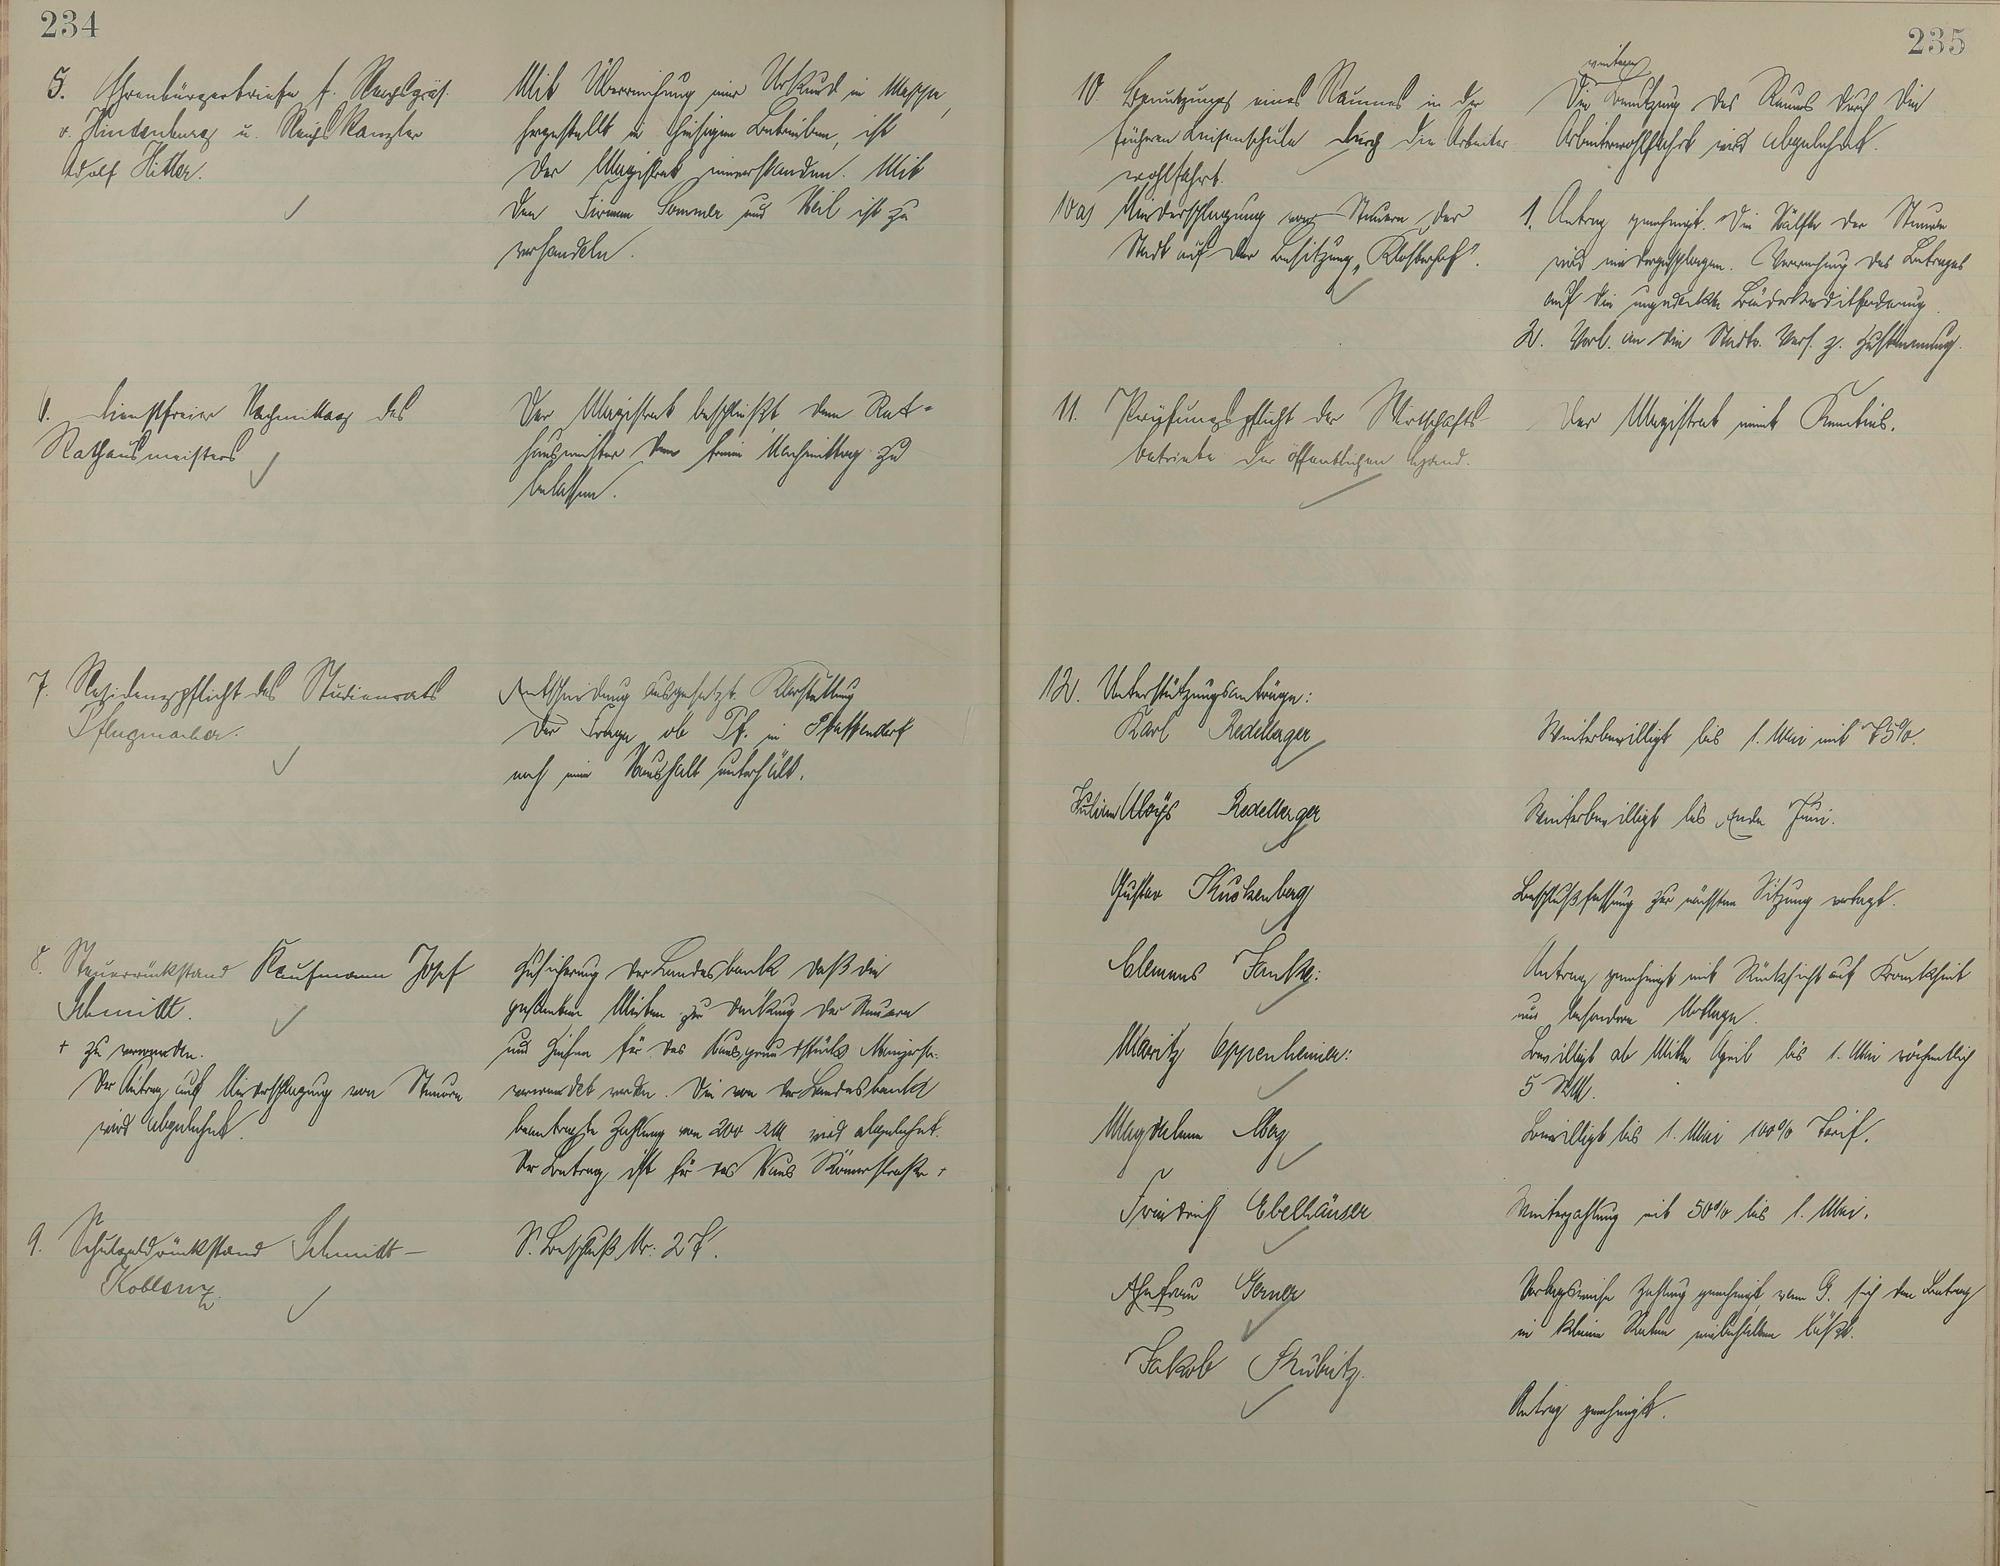 234
5. Ehrenbürgerbriefe f. Reichspräs.
v. Hindenburg u. Reichskanzler
Adolf Hitler.
Mit Überreichung einer Urkund in Mappe,
hergestellt in hiesigen Betrieben, ist
der Magistrat einverstanden. Mit
den Firmen Sommer und Weil ist zu
verhandeln.
6. Dienstfreier Nachmittag des
Rathausmeisters
Der Magistrat beschließt, dem Rat-
hausmeister den freien Nachmittag zu
belassen.
7. Residenzpflicht des Studienrats
Pflugmacher.
Entscheidung ausgesetzt. Klarstellung
der Frage ob Pf. in Pfaffendorf
noch einen Haushalt unterhält.
8. Steuerrückstand Kaufmann Josef
Schmitt.
+ zu verwenden.
Der Antrag auf Niederschlagung von Steuern
wird abgelehnt.
Zusicherung der Landesbank daß die
gestundeten Mieten zur Deckung der Steuern
und Zinsen für das Hausgrundstück Mainzerstr.
verwendet werden. Die von der Landesbank
beantragte Zahlung von 200 RM wird abgelehnt.
Der Betrag ist für das Haus Römerstraße +
9. Schulgeldrückstand Schmitt-
Koblenz.
S. Beschluß Nr: 27.
235
10. Benutzung eines Raumes in der
früheren Luisenschule durch die Arbeiter-
wohlfahrt.
weitere
Die Benutzung des Raumes durch die
Arbeiterwohlfahrt wird abgelehnt.
10a) Niederschlagung von Steuern der
Stadt auf der Besitzung „Klosterhof".
1. Antrag genehmigt. Die Hälfte der Steuern
wird niedergeschlagen. Verrechnung des Betrages
auf die ungedeckte
2. Vorl. an die Stadtv. Vers. z. Zustimmung.
11. Prüfungspflicht der Wirtschafts-
betriebe der öffentlichen Hand.
Der Magistrat nimt Kenntnis.
12. Unterstützungsanträge:
Karl Redelberger
Weiterbewilligt bis 1. Mai mit 75%.
Aloys Redelberger
Weiterbewilligt bis Ende Juni.
Gustav Kuckenberg
Beschlußfassung zur nächsten Sitzung vertagt.
Clemens Janke:
Antrag genehmigt mit Rücksicht auf Krankheit
und besondere Notlage.
Moritz Oppenheimer:
Bewilligt ab Mitte April bis 1. Mai wöchentlich
5 RM.
Magdalena May
Bewilligt bis 1. Mai 100% Tarif.
Friedrich Ebelhäuser
Weiterzahlung mit 50% bis 1. Mai.
Ehefrau Gerner
Vorlagsweise Zahlung genehmigt, wenn G. sich den Betrag
in kleinen Raten einbehalten läßt.
Jakob Skubitz.
Antrag genehmigt.